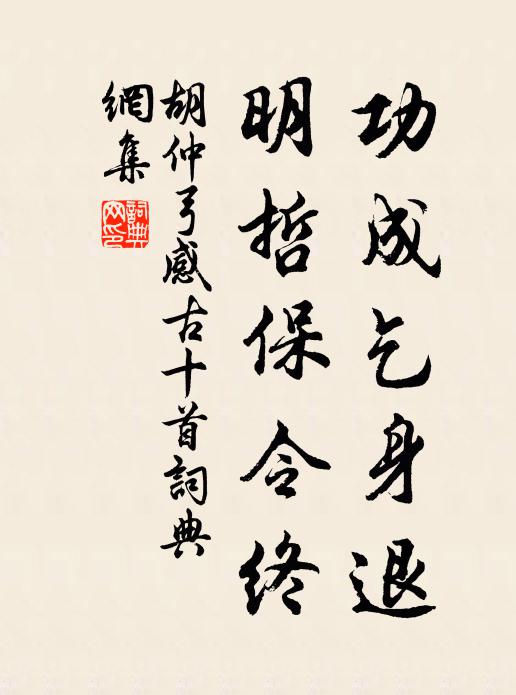 功成乞身退
明哲保令終
胡仲弓感古十首詞典
網集
詞典網印